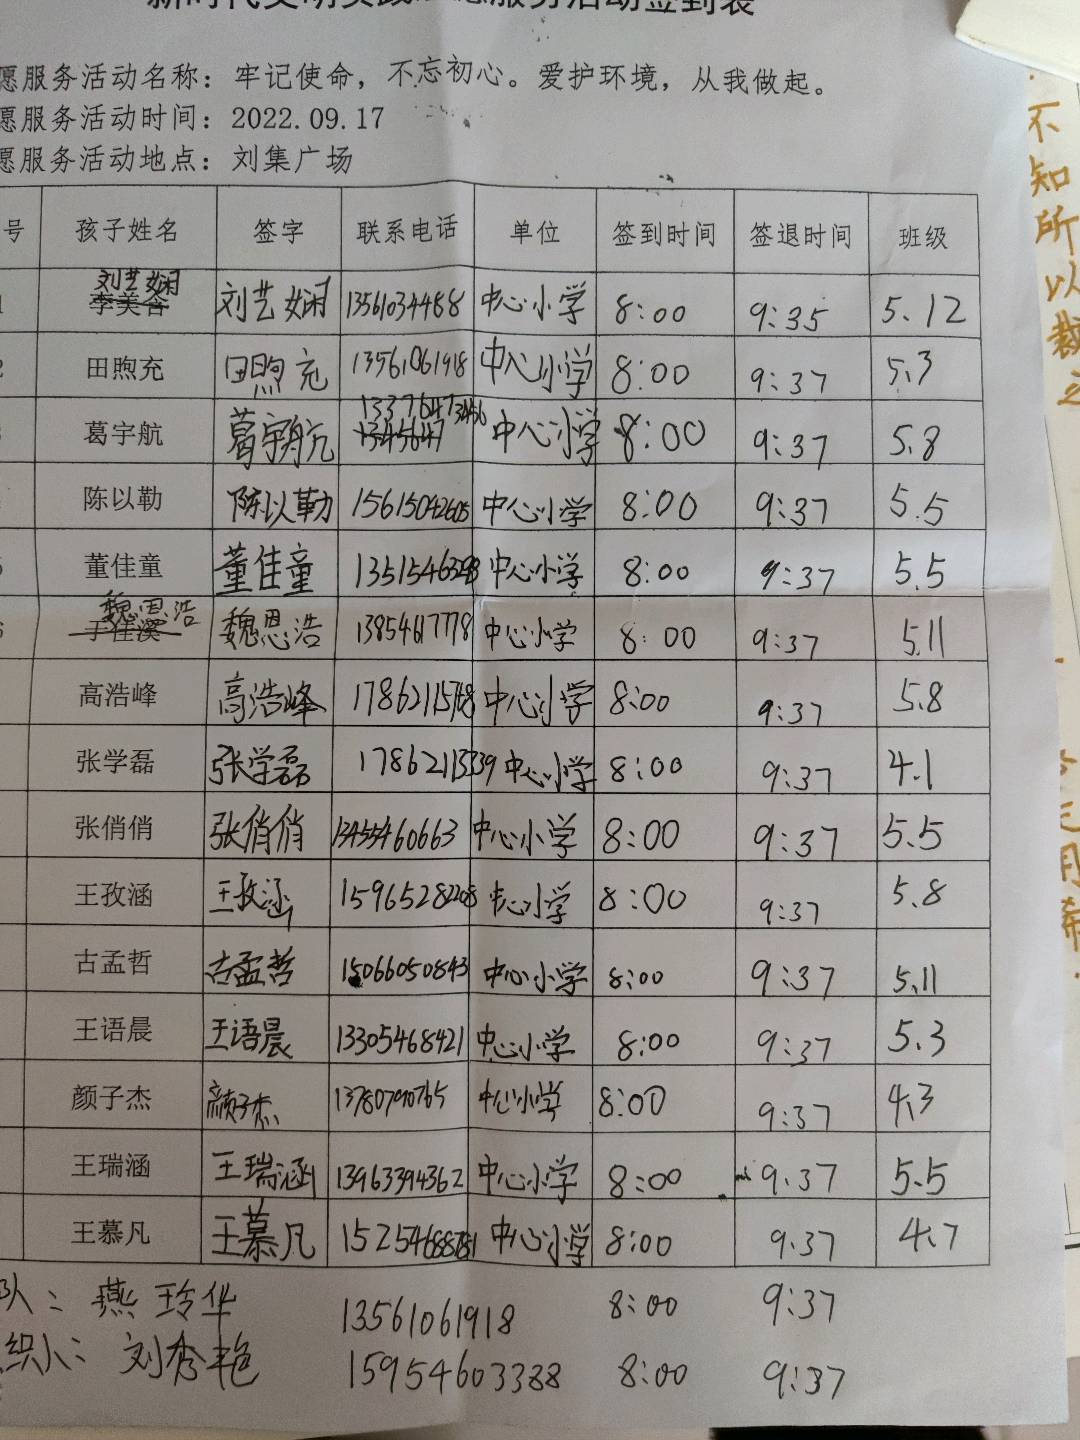 服务活动签到表
愿服务活动名称：牢记使命，不忘初心。爱护环境，从我做起。
愿服务活动时间：2022.09.17
愿服务活动地点：刘集广场
号 孩子姓名 签字 联系电话 单位 签到时间 签退时间 班级
刘艺娴
1 李美含 刘艺娴 13561034488 中心小学 8:00 9:35 5.12
2 田煦充 田煦充 13561061918 中心小学 8:00 9:37 5.3
13376473456
葛宇航 葛宇航 1345647 中心小学 8:00 9:37 5.8
陈以勒 陈以勤 15615042605 中心小学 8:00 9:37 5.5
董佳童 董佳童 中心小学 8:00 9:37 5.5
魏恩浩
于佳溪 魏恩浩 13854617778 中心小学 8:00 9:37 5.11
高浩峰 高浩峰 中心小学 8:00 9:37 5.8
张学磊 张学磊 中心小学 8:00 9:37 4.1
张俏俏 张俏俏 13455460663 中心小学 8:00 9:37 5.5
王孜涵 王孜涵 15965282208 中心小学 8:00 9:37 5.8
古孟哲 古孟哲 15066050843 中心小学 8:00 9:37 5.11
王语晨 王语晨 13305468421 中心小学 8:00 9:37 5.3
颜子杰 颜子杰 13780790765 中心小学 8:00 9:37 4.3
王瑞涵 王瑞涵 13963394362 中心小学 8:00 9:37 5.5
王慕凡 王慕凡 中心小学 8:00 9:37 4.7
队：燕玲华 13561061918 8:00 9:37
织人：刘秀艳 15954603388 8:00 9:37
不知所以裁之